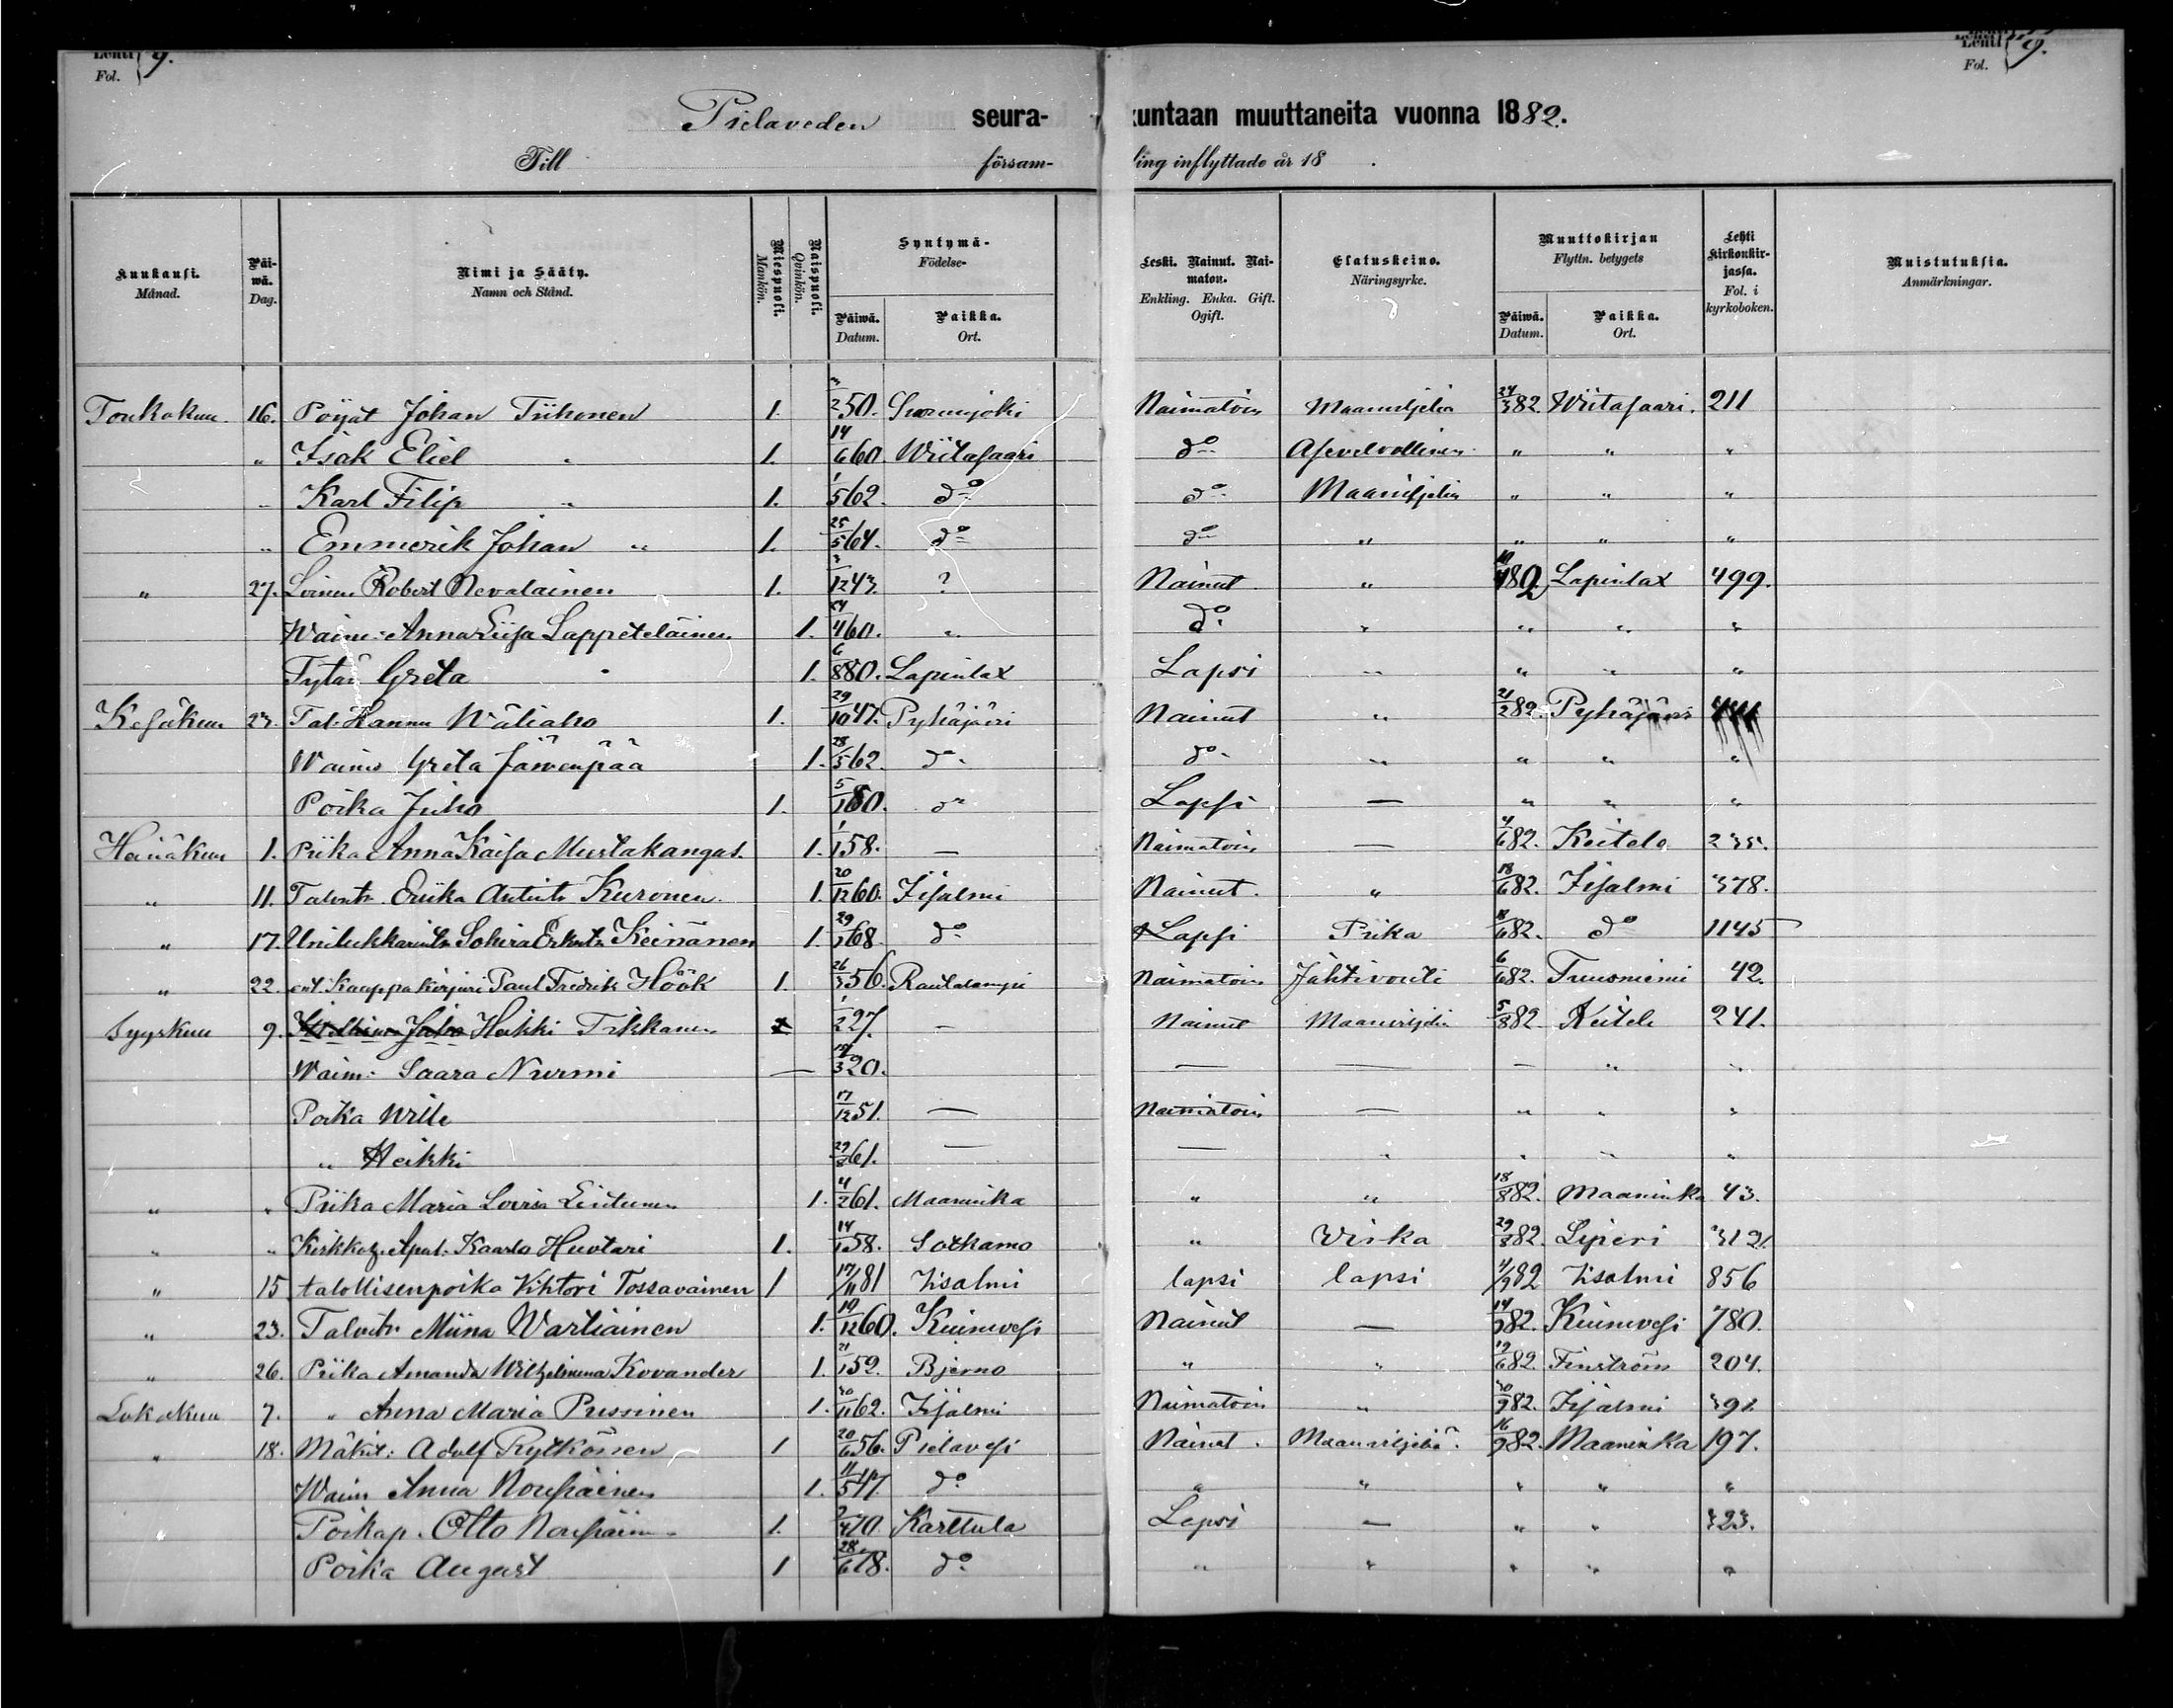 Lehti 9.
Fol.
Lehti 9.
Fol.
Pielaveden seura-kuntaan muuttaneita vuonna 1882.
Till församling inflyttade år 18 .
Kuukausi. Månad.
Päi-wä. Dag.
Nimi ja Sääty. Namn och Stånd.
Miespuoli. Mankön.
Naispuoli. Qvinkön.
Syntymä- Födelse-
Päiwä. Datum.
Paikka. Ort.
Leski. Nainut. Naimaton. Enkling. Enka. Gift. Ogift.
Elatuskeino. Näringsyrke.
Muuttokirjan Flyttn. betygets
Päiwä. Datum.
Paikka. Ort.
Lehti kirkonkirjassa. Fol. i kyrkoboken.
Muistutuksia. Anmärkningar.
Toukokuu 16. Pojat Johan Tiihonen 1. 3/2 50. Naimatoin Maanviljelia 24/3 82. Wiitasaari. 211
" Isak Eliel " 1. 14/6 60. Wiitasaari do Asevelvollinen " " "
" Karl Filip " 1. 1/5 62. do do Maanviljelia " " "
" Emmerik Johan " 1. 25/5 64. do do " " " "
" 27. Loinen Robert Nevalainen 1. 3/12 43. ? Nainut " 82. Lapinlax 499.
Waimo Anna Liisa Lappeteläinen 1. 24/4 60. " do " " " "
Tytär Greta " 1. 6/8 80. Lapinlax Lapsi " " " "
Kesäkuu 23. Tal. Hannu Wäliaho 1. 29/10 47. Pyhäjärvi Nainut " 21/2 82. Pyhäjärvi
Waimo Greta Järvenpää 1. 28/5 62. do do " " " "
Poika Juho 1. 5/1 80. do Lapsi — " " "
Heinäkuu 1. Piika Anna Kaisa Mustakangas. 1. 1/1 58. — Naimatoin — 4/6 82. Keitele 235.
" 11. Talontr Eriika Antintr Kuronen 1. 20/12 60. Iisalmi Nainut. " 18/6 82. Iisalmi 378.
" 17. Unilukkarintr Sohvia Erkintr Keinänen 1. 29/1 68 do Lapsi Piika 8/6 82. do 1145
" 22. ent. Kauppakirjuri Paul Fredrik Höök 1. 26/3 56. Rautalampi Naimatoin Jahtivouti 6/6 82. Tuusniemi 42.
Syyskuu 9. Heikki Tikkanen 1/2 27. — Nainut Maanviljelia 5/8 82. Keitele 241.
Waimo Saara Nurmi — 3 20. — — — " "
Poika Wille 17/12 51. — Naimatoin — " " "
" Heikki 29/8 61. — — " " " "
" " Piika Maria Lovisa Lintunen 1. 4/2 61. Maaninka " " 18/8 82. Maaninka 43.
" " Kirkkoh. Apul. Kaarlo Huotari 1. 14/1 58. Sotkamo " Virka 29/8 82. Liperi 312.
" 15 talollisenpoika Vihtori Tossavainen 1 17/11 81 Iisalmi lapsi lapsi 4/9 82 Iisalmi 856
" 23. Talontr Miina Wartiainen 1. 19/12 60. Kiuruvesi Nainut — 14/9 82. Kiuruvesi 780.
" 26. Piika Amanda Wilhelmina Kovander 1. 21/1 59. Bjerno " " 19/6 82. Finström 204.
Lokakuu 7. " Anna Maria Pussinen 1. 30/11 62. Iisalmi Naimatoin " 30/9 82. Iisalmi 391.
" 18. Mäkit: Adolf Rytkönen 1 20/6 56. Pielavesi Nainut. Maanviljeliä. 16/9 82. Maaninka 197.
Waimo Anna Nousiainen 1. 11/5 47 do " " " " "
Poikap. Otto Nousiain 1. 70. Karttula Lapsi — " " 323.
Poika August 1 28/6 78. do " " " " "